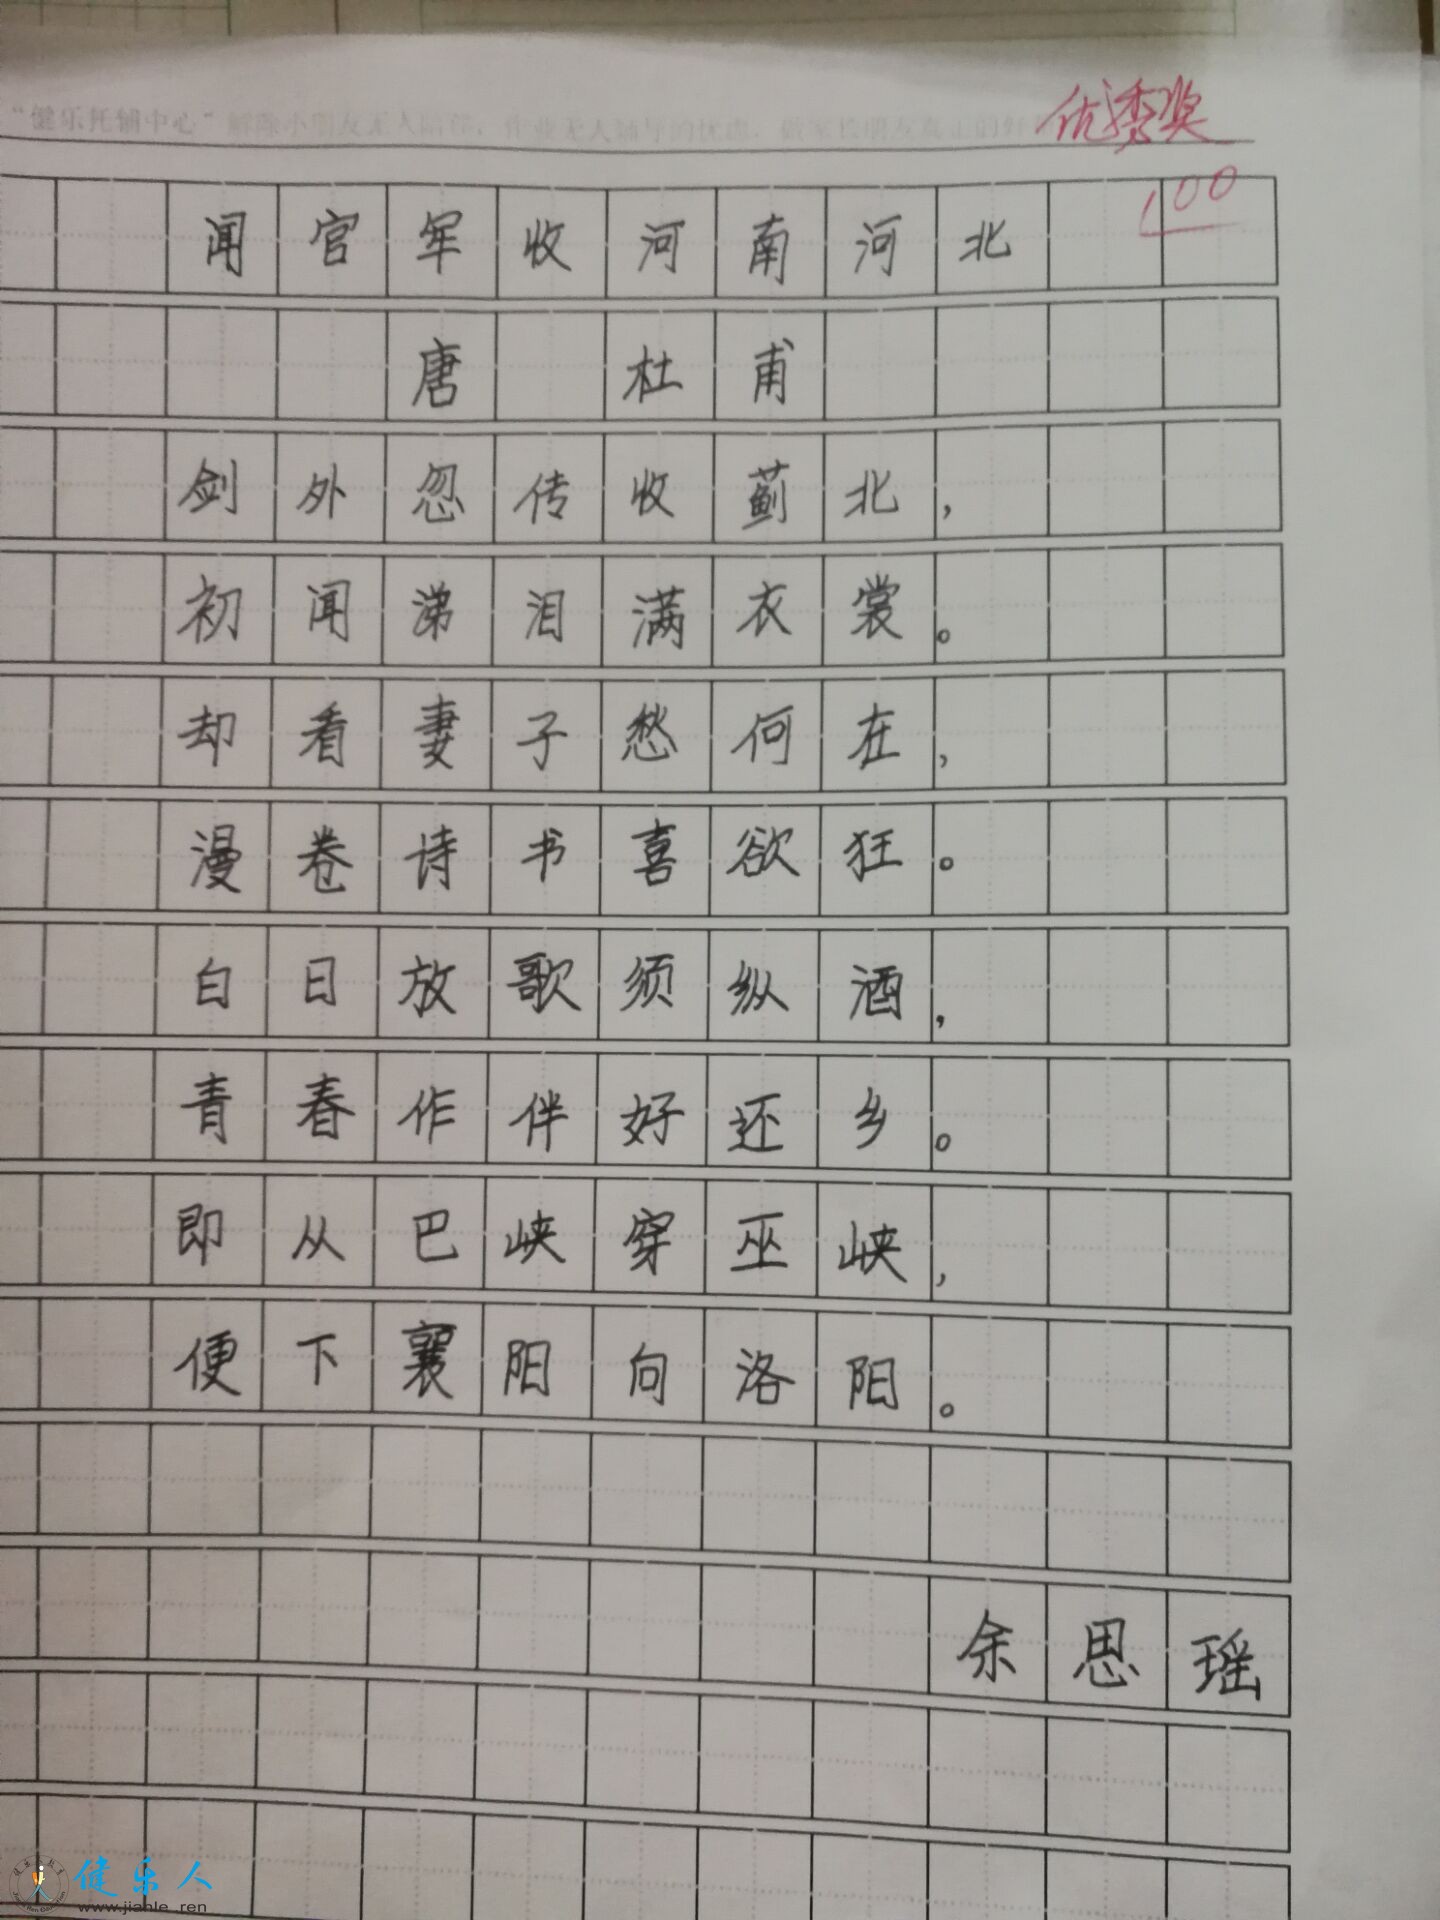 “健乐托辅中心”解除小朋友无人陪伴，作业无人辅导的忧虑，做家长朋友真正的好
优秀奖
100
闻官军收河南河北
唐 杜甫
剑外忽传收蓟北，
初闻涕泪满衣裳。
却看妻子愁何在，
漫卷诗书喜欲狂。
白日放歌须纵酒，
青春作伴好还乡。
即从巴峡穿巫峡，
便下襄阳向洛阳。
余思瑶
健乐人
www.jianle_ren